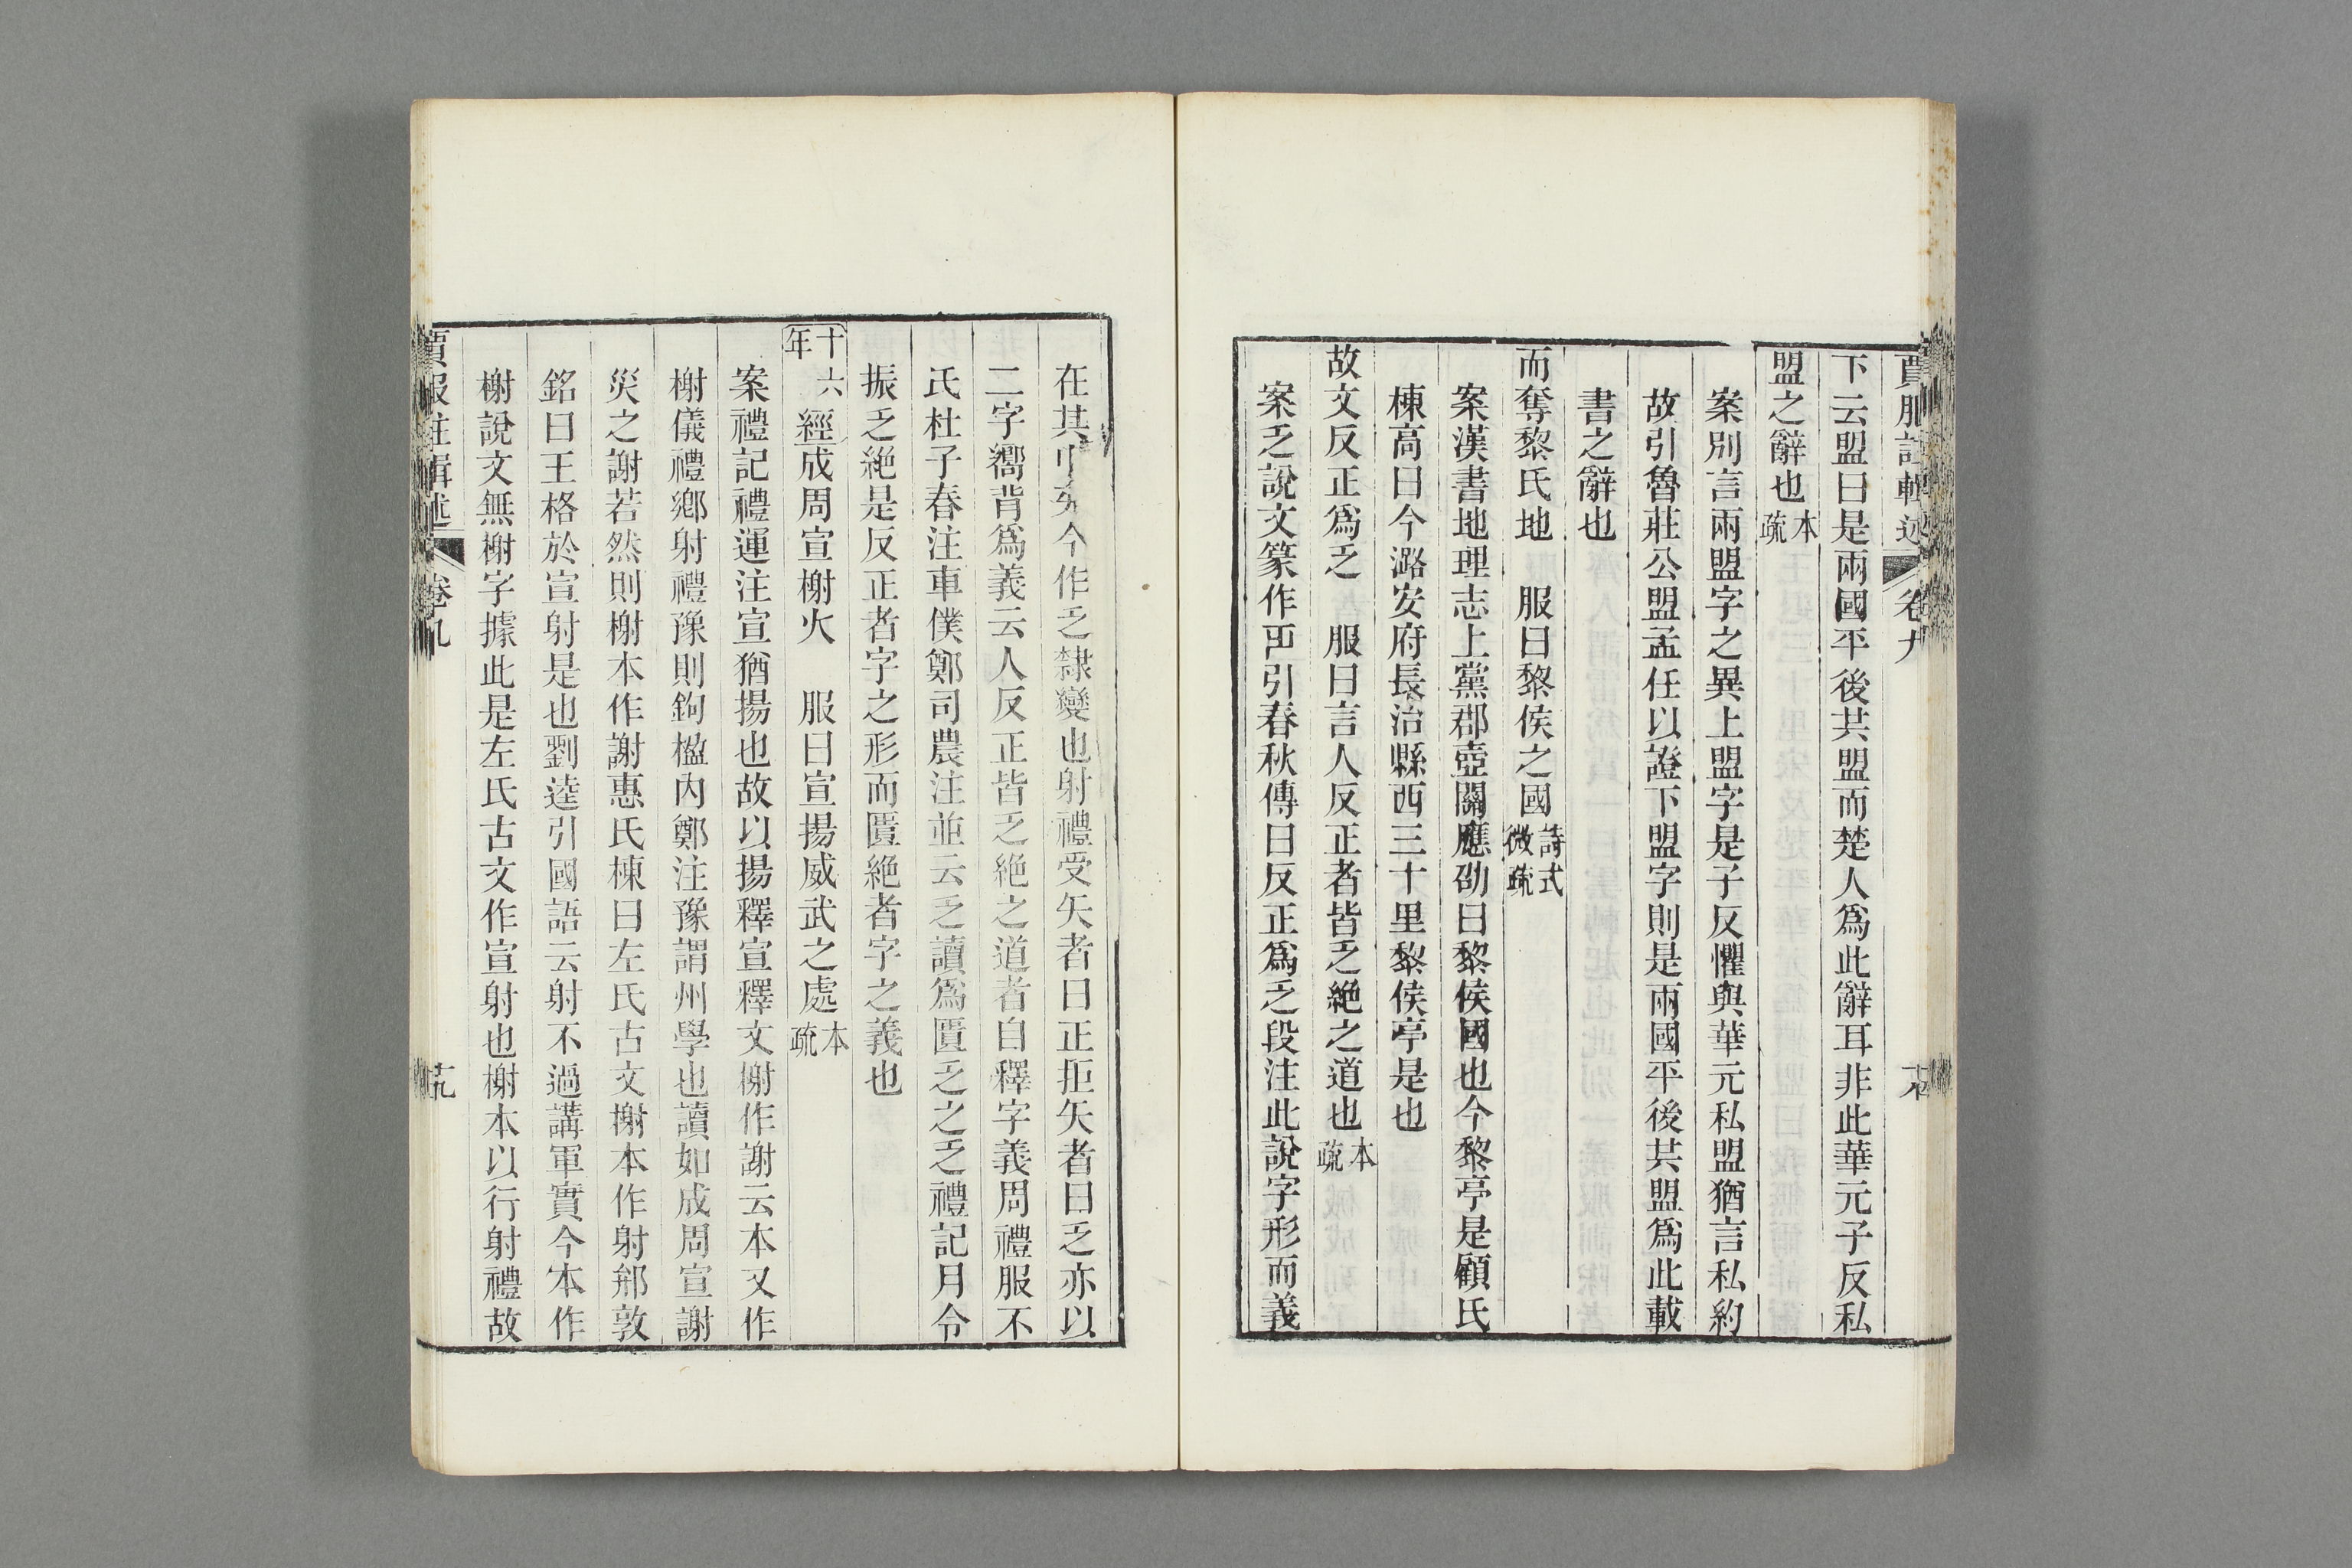 賈服註輯述 卷九
下云盟曰是兩國平後共盟而楚人爲此辭耳非此華元子反私
盟之辭也本疏
案別言兩盟字之異上盟字是子反懼與華元私盟猶言私約
故引魯莊公盟孟任以證下盟字則是兩國平後共盟爲此載
書之辭也
而奪黎氏地 服曰黎侯之國詩式微疏
案漢書地理志上黨郡壺關應劭曰黎侯國也今黎亭是顧氏
棟高曰今潞安府長治縣西三十里黎侯亭是也
故文反正爲乏 服曰言人反正者皆乏絶之道也本疏
案乏說文篆作𠂜引春秋傳曰反正爲乏之段注此說字形而義
在其中矣今作乏隸變也射禮受矢者曰正拒矢者曰乏亦以
二字嚮背爲義云人反正皆乏絶之道者自釋字義周禮服不
氏杜子春注車僕鄭司農注並云乏讀爲匱乏之乏禮記月令
振乏絶是反正者字之形而匱絶者字之義也
十六年 經成周宣榭火 服曰宣揚威武之處本疏
案禮記禮運注宣猶揚也故以揚釋宣釋文榭作謝云本又作
榭儀禮鄉射禮豫則鉤楹内鄭注豫謂州學也讀如成周宣謝
災之謝若然則榭本作謝惠氏棟曰左氏古文榭本作射𨛭敦
銘曰王格於宣射是也劉逵引國語云射不過講軍實今本作
榭說文無榭字據此是左氏古文作宣射也榭本以行射禮故
賈服註輯述 卷九